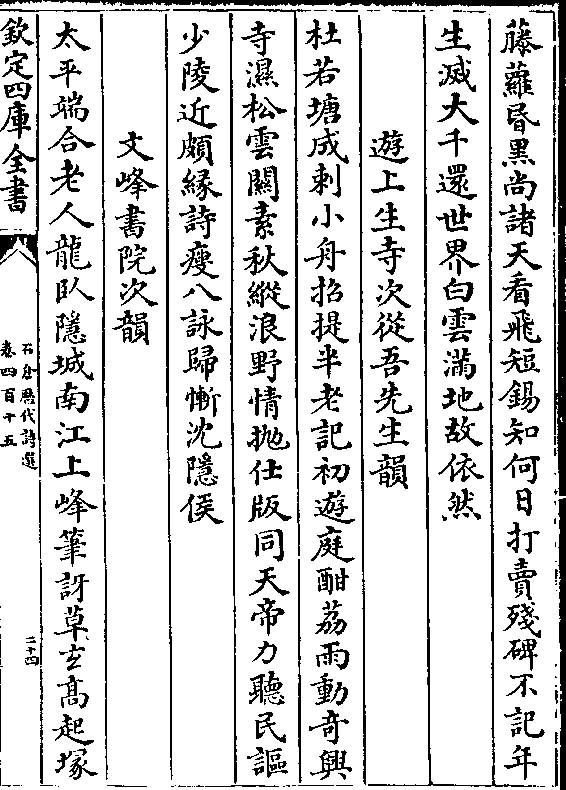 藤蘿昏黑尚諸天看飛短錫知何日打賣殘碑不記年
生滅大千還世界白雲滿地故依然
遊上生寺次從吾先生韻
杜若塘成刺小舟招提半老記初遊庭酣荔雨動奇興
寺濕松雲闗素秋縱浪野情抛仕版同天帝力聽民謳
少陵近頗緣詩瘦八詠歸慚沈隱侯
文峰書院次韻
太平端合老人龍臥隱城南江上峰筆訝草玄髙起塚
欽定四庫全書
石倉歷代詩選
卷四百十五
二十四